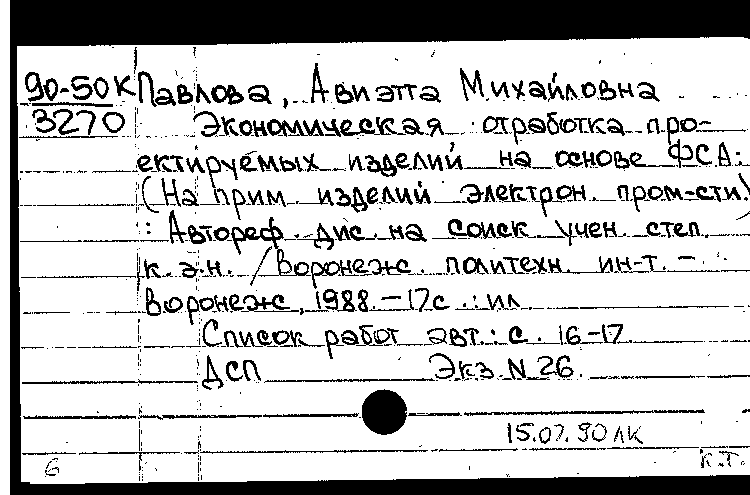 90-50К Павлова, Авиэтта Михайловна
3270 Экономическая отработка про-
ектируемых изделий на основе ФСА:
(На прим. изделий электрон. пром-сти)
: Автореф. дис. на соиск. учен. степ.
к.э.н. / Воронеж. политехн. ин-т. –
Воронеж, 1988. – 17с. : ил
Список работ авт.: с. 16-17.
ДСП Экз. N 26.
15.07.90 ЛК
6 К.Т.